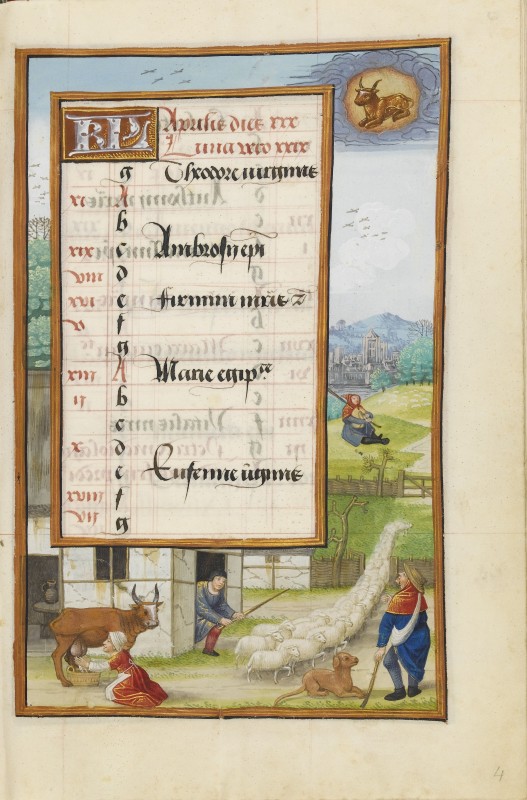 KL Aprilis dies xxx
Luna
g Theodore virginis
xi A
b
xix c Ambrosij epi
viii d
xvi e Firmini
v f
g
xiii A Marie egip
ii b
c
x d
e Eufemie virginis
xviii f
vii g
4